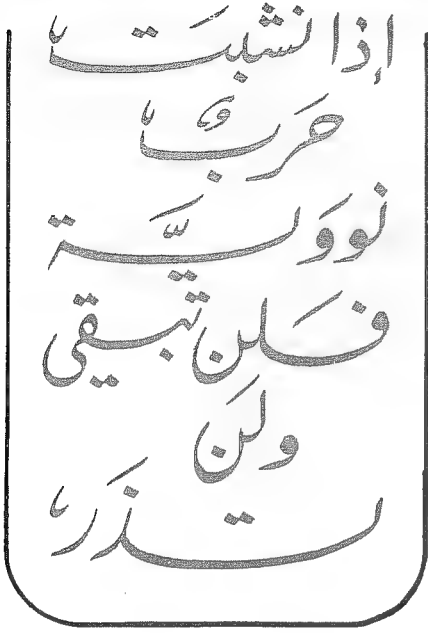 إذا نشبت
حَربٌ
نووَيَّة
فَلن تبقي
ولَن
تذَر